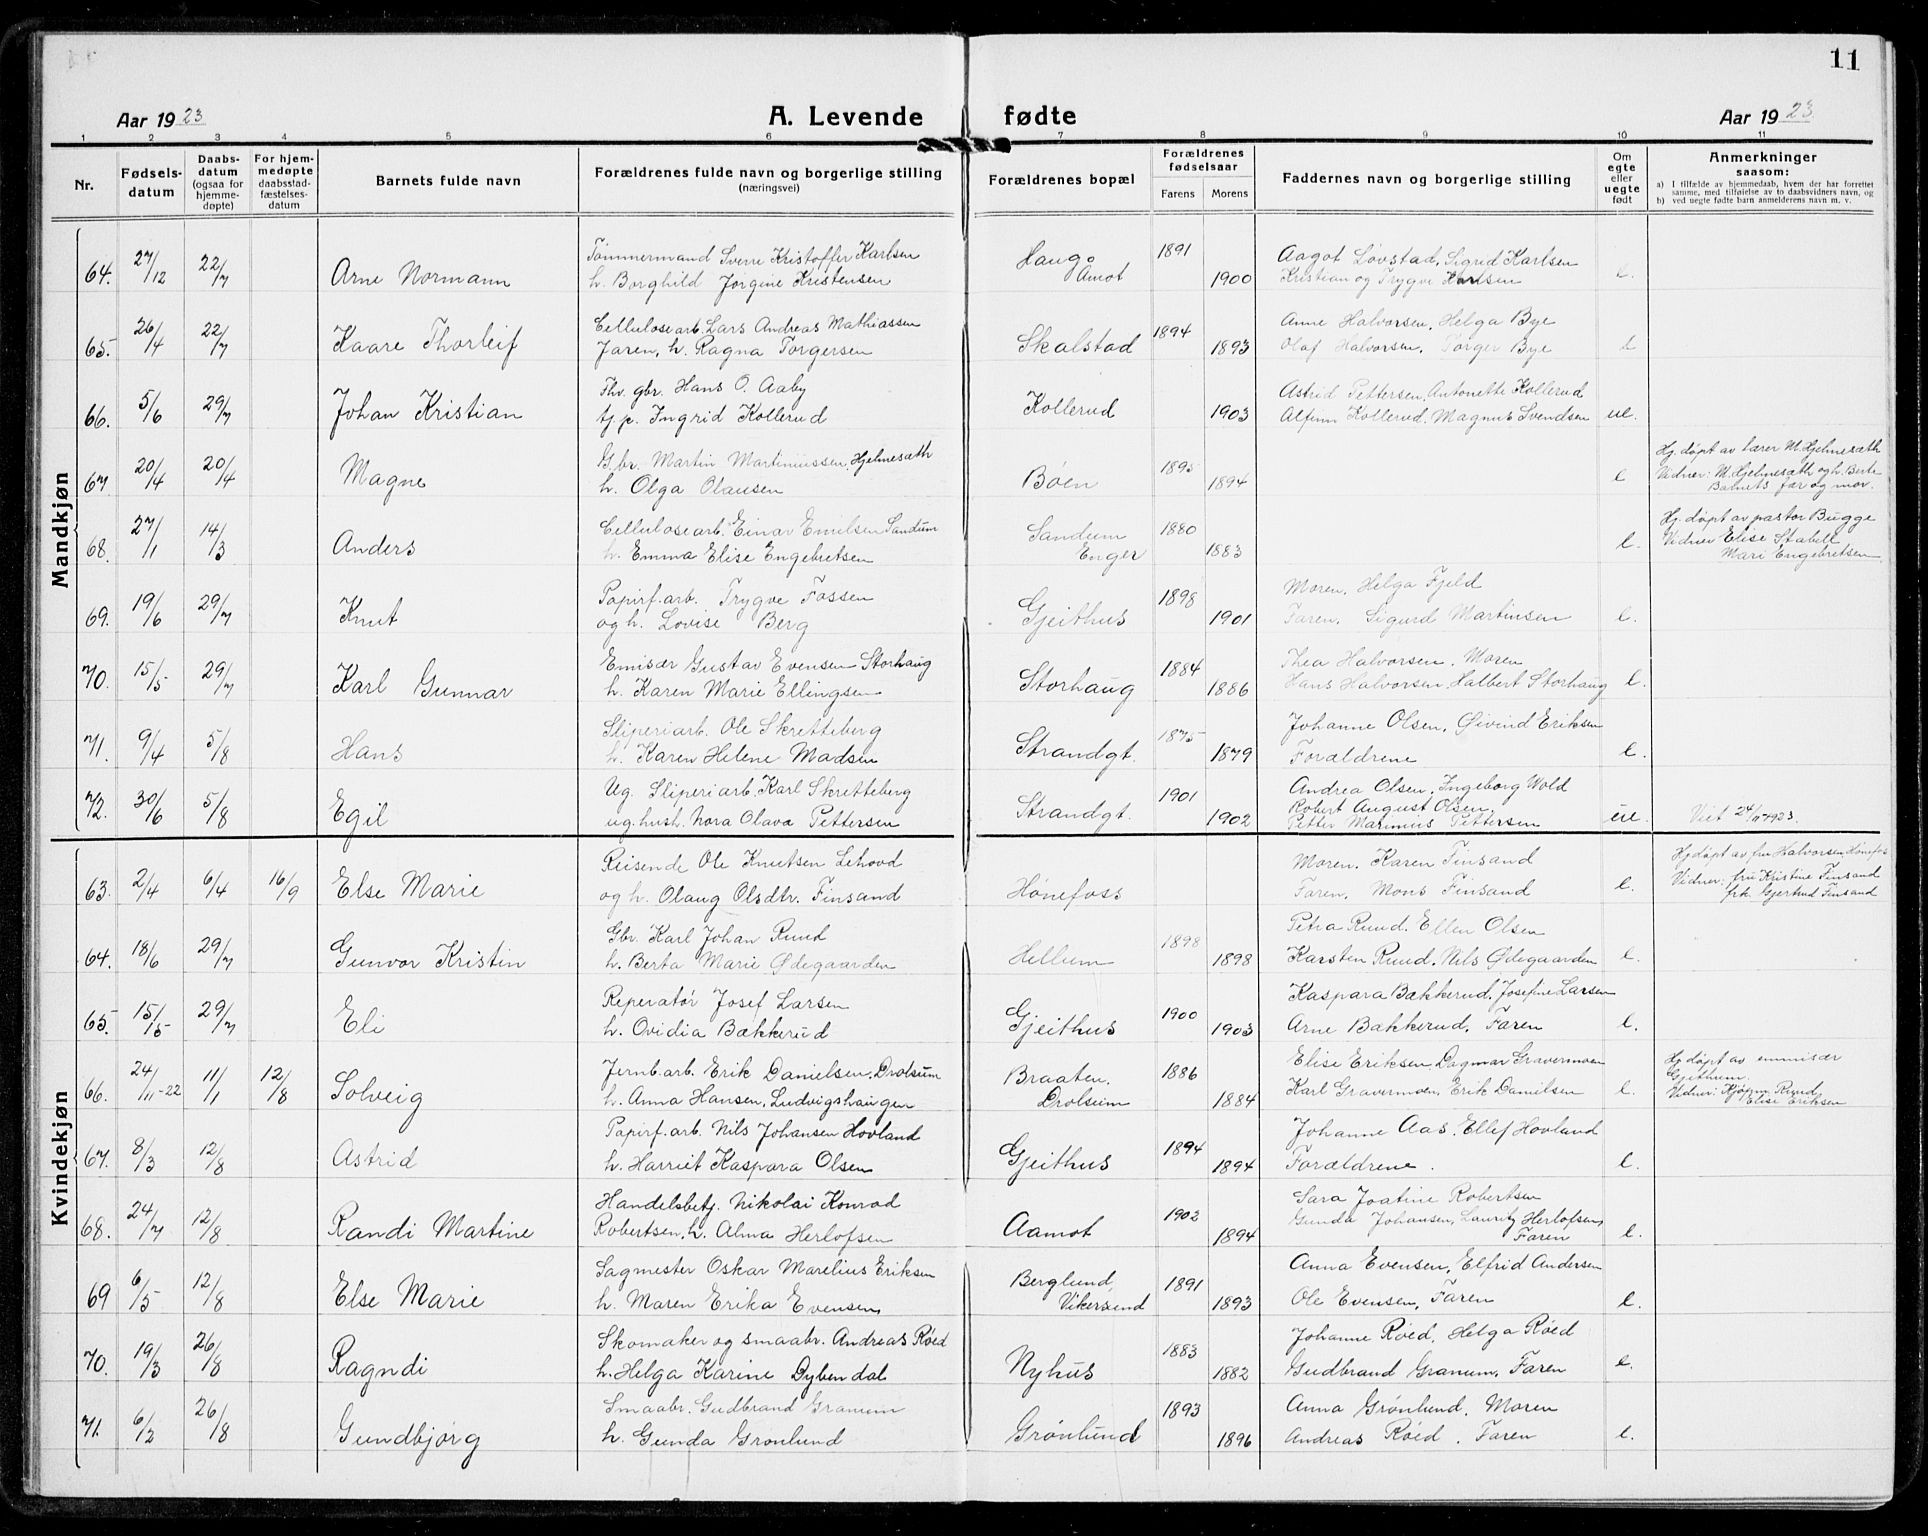 11
Aar 1923
A. Levende fødte
Aar 1923
1 2 3 4 5 6 7 8 9 10 11
Nr.
Fødsels-
datum
Daabs-
datum
(ogsaa for
hjemme-
døpte)
For hjem-
medøpte
daabsstad-
fæstelses-
datum
Barnets fulde navn
Forældrenes fulde navn og borgerlige stilling
(næringsvei)
Forældrenes bopæl
Forældrenes
fødselsaar
Farens Morens
Faddernes navn og borgerlige stilling
Om
egte
eller
uegte
født
Anmerkninger
saasom:
a) I tilfælde av hjemmedaab, hvem der har forrettet
samme, med tilføielse av to daabsvidners navn, og
b) ved uegte fødte barn anmelderens navn m. v.
Mandkjøn
64. 27/12 22/7 Arne Normann
Tømmermand Sverre Kristoffer Karlsen
h. Borghild Jørgine Kristensen
Haug
Åmot
1891 1900
Aagot Løvstad, Sigrid Karlsen
Kristian og Trygve Karlsen
e.
65. 26/4 22/7 Kaare Thorleif
Cellulosearb. Lars Andreas Mathiassen
Jaren, h. Ragna Torgersen
Skalstad
1894 1893
Anne Halvorsen, Helga Bye
Olaf Halvorsen, Torger Bye
e
66. 5/6 29/7 Johan Kristian
Fhv. gbr. Hans O. Aaby
tj.p. Ingrid Kollerud
Kollerud
1903
Astrid Pettersen, Antonette Kollerud
Alfinn Kollerud, Magnus Svendsen
ue.
67. 20/4 20/4 Magne
Gbr. Martin Martiniussen Hjelmesæth
h. Olga Olausen
Bøen
1895 1894
e
Hj. døpt av lærer M. Hjelmesæth
Vidner: M. Hjelmesæth og h. Berte
Barnets far og mor.
68. 27/1 14/3 Anders
Cellulosearb. Einar Emilsen Sandum
h. Emma Elise Engebretsen
Sandum
Enger
1880 1883
e.
Hj. døpt av pastor Bugge
Vidner Elise Stabell
Mari Engebretsen
69. 19/6 29/7 Knut
Papirf.arb. Trygve Fossen
og h. Lovise Berg
Gjeithus
1898 1901
Moren, Helga Fjeld
Faren, Sigurd Martinsen
e.
70. 15/5 29/7 Karl Gunnar
Emisær Gustav Evensen Storhaug
h. Karen Marie Ellingsen
Storhaug
1884 1886
Thea Halvorsen, Moren
Hans Halvorsen, Halbert Storhaug
e.
71. 9/4 5/8 Hans
Sliperiarb. Ole Skretteberg
h. Karen Helene Madsen
Strandgt.
1875 1879
Johanne Olsen, Øivind Eriksen
Forældrene
e.
72. 30/6 5/8 Egil
Ug. Sliperiarb. Karl Skretteberg
ug. hush. Nora Olava Pettersen
Strandgt.
1901 1902
Andrea Olsen, Ingeborg Wold
Robert August Olsen,
Petter Marinius Pettersen
ue.
Viet 24/11 1923.
Kvindekjøn
63. 2/4 6/4 16/9 Else Marie
Reisende Ole Knutsen Lehovd
og h. Olaug Olsdtr. Finsand
Hønefoss
Moren, Karen Finsand
Faren, Mons Finsand
e.
Hj.døpt av fru Halvorsen, Hønefos
Vidner: fru Kristine Finsand
frk. Gjertrud Finsand
64. 18/6 29/7 Gunvor Kristin
Gbr. Karl Johan Ruud
h. Berta Marie Ødegaarden
Hellum
1898 1898
Petra Ruud, Ellen Olsen
Karsten Ruud, Nils Ødegaarden
e.
65. 15/15 29/7 Eli
Reperatør Josef Larsen
h. Ovidia Bækkerud
Gjeithus
1900 1903
Kaspara Bækkerud, Josefine Larsen
Arne Bækkerud, Faren
e.
66. 24/11-22 11/1 12/8 Solveig
Jernb.arb. Erik Danielsen, Drolsum
h. Anna Hansen, Ludvigshaugen
Braaten,
Drolsum
1886 1884
Elise Eriksen, Dagmar Gravermoen
Karl Gravermoen, Erik Danielsen
e.
Hj. døpt av emmisær
Gjethum.
Vidner: Ruud
Elise Eriksen
67. 8/3 12/8 Astrid
Papirf.arb. Nils Johansen Hovland
h. Harriet Kaspara Olsen
Gjeithus
1894 1894
Johanne Aas, Ellef Hovland
Forældrene.
e.
68. 24/7 12/8 Randi Martine
Handelsbetj. Nikolai Konrad
Robertsen, h. Alma Herlofsen
Aamot
1902 1894
Sara Joatine Robertsen
Gunda Johansen, Lauritz Herlofsen,
Faren
e.
69 6/5 12/8 Else Marie
Sagmester Oskar Marelius Eriksen
h. Maren Erika Evensen
Berglund,
Vikersund
1891 1893
Anna Evensen, Elfrid Andersen
Ole Evensen, Faren
e.
70. 19/3 26/8 Ragndi
Skomaker og smaabr. Andreas Røed
h. Helga Karine Dybendal
Nyhus
1883 1882
Johanne Røed, Helga Røed
Gudbrand Granum, Faren
e.
71. 6/2 26/8 Gundbjørg
Smaabr. Gudbrand Granum
h. Gunda Grønlund
Grønlund
1893 1896
Anna Grønlund, Moren
Andreas Røed, Faren
e.